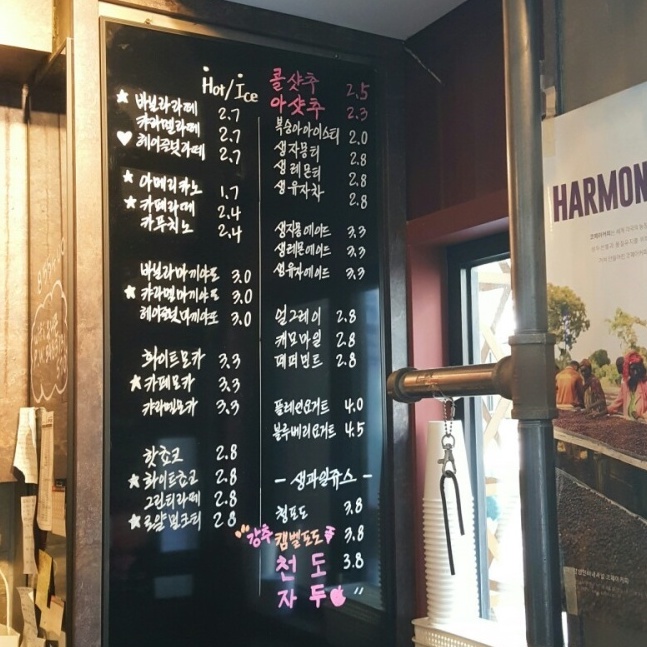 Hot/Ice
★ 바닐라라떼 2.7
캬라멜라떼 2.7
♥ 헤이즐넛라떼 2.7
★ 아메리카노 1.7
★ 카페라떼 2.4
카푸치노 2.4
바닐라마끼아또 3.0
★ 캬라멜마끼야또 3.0
헤이즐넛마끼야또 3.0
화이트모카 3.3
★ 카페모카 3.3
캬라멜모카 3.3
핫쵸코 2.8
★ 화이트쵸코 2.8
그린티라떼 2.8
★ 로얄밀크티 2.8
콜샷추 2.5
아샷추 2.3
복숭아아이스티 2.0
생자몽티 2.8
생레몬티 2.8
생유자차 2.8
생자몽에이드 3.3
생레몬에이드 3.3
생유자에이드 3.3
얼그레이 2.8
캐모마일 2.8
페퍼먼트 2.8
플레인요거트 4.0
블루베리요거트 4.5
- 생과일쥬스 -
청포도 3.8
강추 캠벨포도 3.8
천도 3.8
자두 "
HARMON